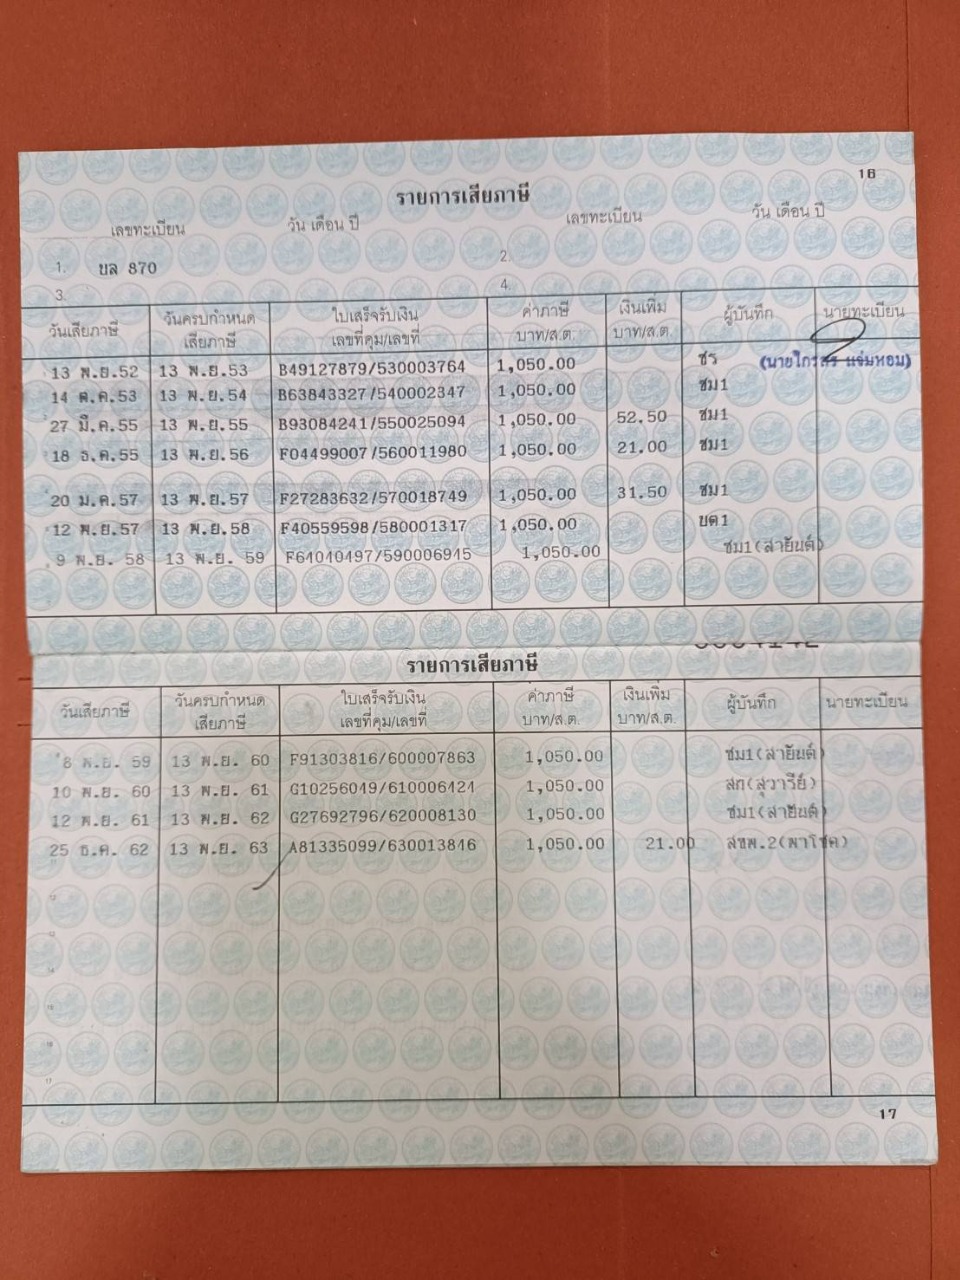 16
รายการเสียภาษี
เลขทะเบียน วัน เดือน ปี เลขทะเบียน วัน เดือน ปี
1. บล 870 2.
3. 4.
วันเสียภาษี วันครบกำหนด เสียภาษี ใบเสร็จรับเงิน เลขที่คุม/เลขที่ ค่าภาษี บาท/ส.ต. เงินเพิ่ม บาท/ส.ต. ผู้บันทึก นายทะเบียน
13 พ.ย.52 13 พ.ย.53 B49127879/530003764 1,050.00 ชร (นายไกรสร แจ่มหอม)
14 ต.ค.53 13 พ.ย.54 B63843327/540002347 1,050.00 ชม1
27 มี.ค.55 13 พ.ย.55 B93084241/550025094 1,050.00 52.50 ชม1
18 ธ.ค.55 13 พ.ย.56 F04499007/560011980 1,050.00 21.00 ชม1
20 ม.ค.57 13 พ.ย.57 F27283632/570018749 1,050.00 31.50 ชม1
12 พ.ย.57 13 พ.ย.58 F40559598/580001317 1,050.00 บด1
9 พ.ย. 58 13 พ.ย. 59 F64040497/590006945 1,050.00 ชม1(สายันต์)
รายการเสียภาษี
วันเสียภาษี วันครบกำหนด เสียภาษี ใบเสร็จรับเงิน เลขที่คุม/เลขที่ ค่าภาษี บาท/ส.ต. เงินเพิ่ม บาท/ส.ต. ผู้บันทึก นายทะเบียน
8 พ.ย. 59 13 พ.ย. 60 F91303816/600007863 1,050.00 ชม1(สายันต์)
10 พ.ย. 60 13 พ.ย. 61 G10256049/610006424 1,050.00 สก(สุวารีย์)
12 พ.ย. 61 13 พ.ย. 62 G27692796/620008130 1,050.00 ชม1(สายันต์)
25 ธ.ค. 62 13 พ.ย. 63 A81335099/630013846 1,050.00 21.00 สชพ.2(พาโชค)
12
13
14
15
16
17
17